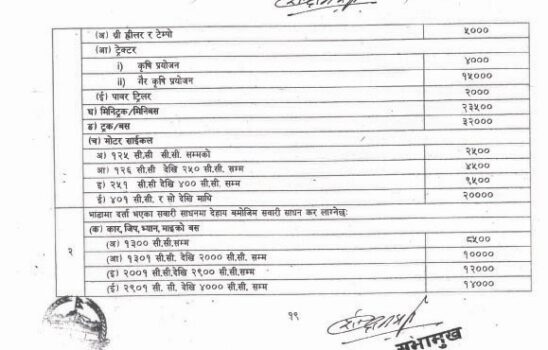 (अ) थ्री ह्वीलर र टेम्पो ५०००
(आ) ट्रेक्टर
i) कृषि प्रयोजन ४०००
ii) गैर कृषि प्रयोजन १५०००
(ई) पावर ट्रिलर २०००
घ) मिनिट्रक/मिनिबस २३५००
ङ) ट्रक/बस ३२०००
(च) मोटर साईकल
अ) १२५ सी.सी सी.सी. सम्मको २५००
आ) १२६ सी.सी देखि २५० सी.सी. सम्म ४५००
इ) २५१ सी.सी देखि ४०० सी.सी. सम्म ९५००
ई) ४०१ सी.सी. र सो देखि माथि २००००
२ भाडामा दर्ता भएका सवारी साधनमा देहाय बमोजिम सवारी साधन कर लाग्नेछ:
(क) कार, जिप, भ्यान, माइक्रो बस
(अ) १३०० सी.सी.सम्म ८५००
(आ) १३०१ सी.सी.देखि २००० सी.सी.सम्म १००००
(इ) २००१ सी.सी.देखि २९०० सी.सी.सम्म १२०००
(ई) २९०१ सी. सी. देखि ४००० सी.सी. सम्म १४०००
१९
सभामुख